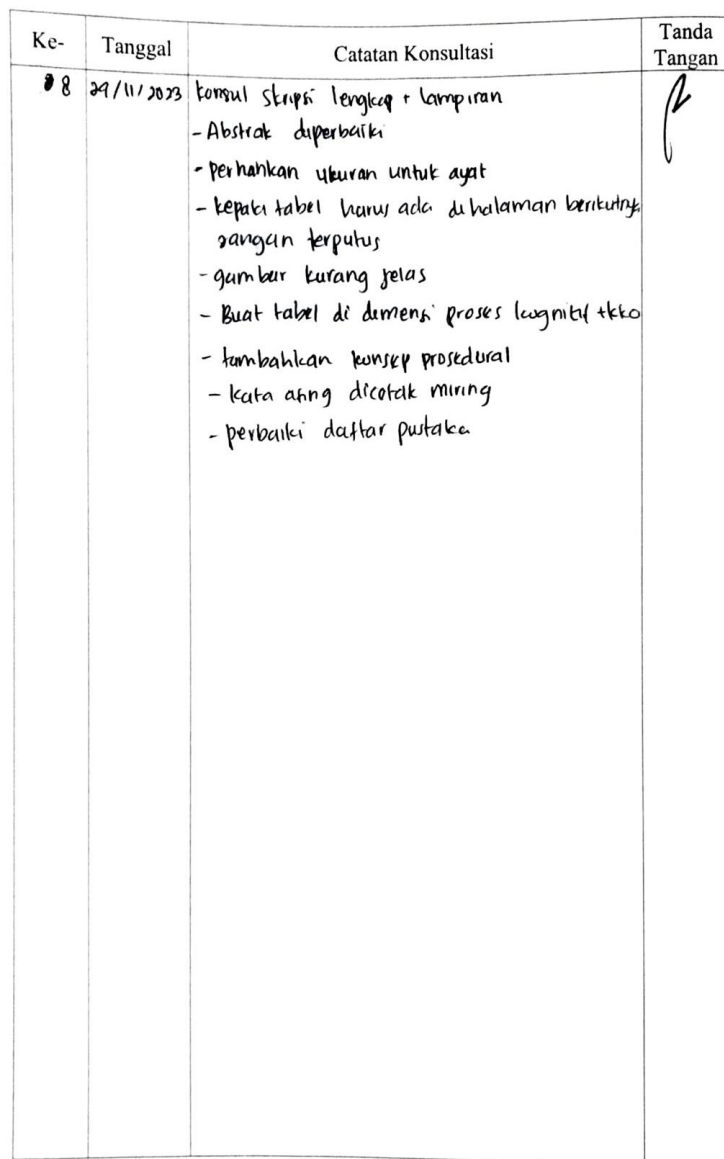 Ke- Tanggal Catatan Konsultasi Tanda Tangan
8 29/11/2023 konsul skripsi lengkap + lampiran
- Abstrak diperbaiki
- perhatikan ukuran untuk ayat
- kepala tabel harus ada di halaman berikutnya
jangan terputus
- gambar kurang jelas
- Buat tabel di dimensi proses kognitif + kko
- tambahkan konsep prosedural
- kata asing dicetak miring
- perbaiki daftar pustaka